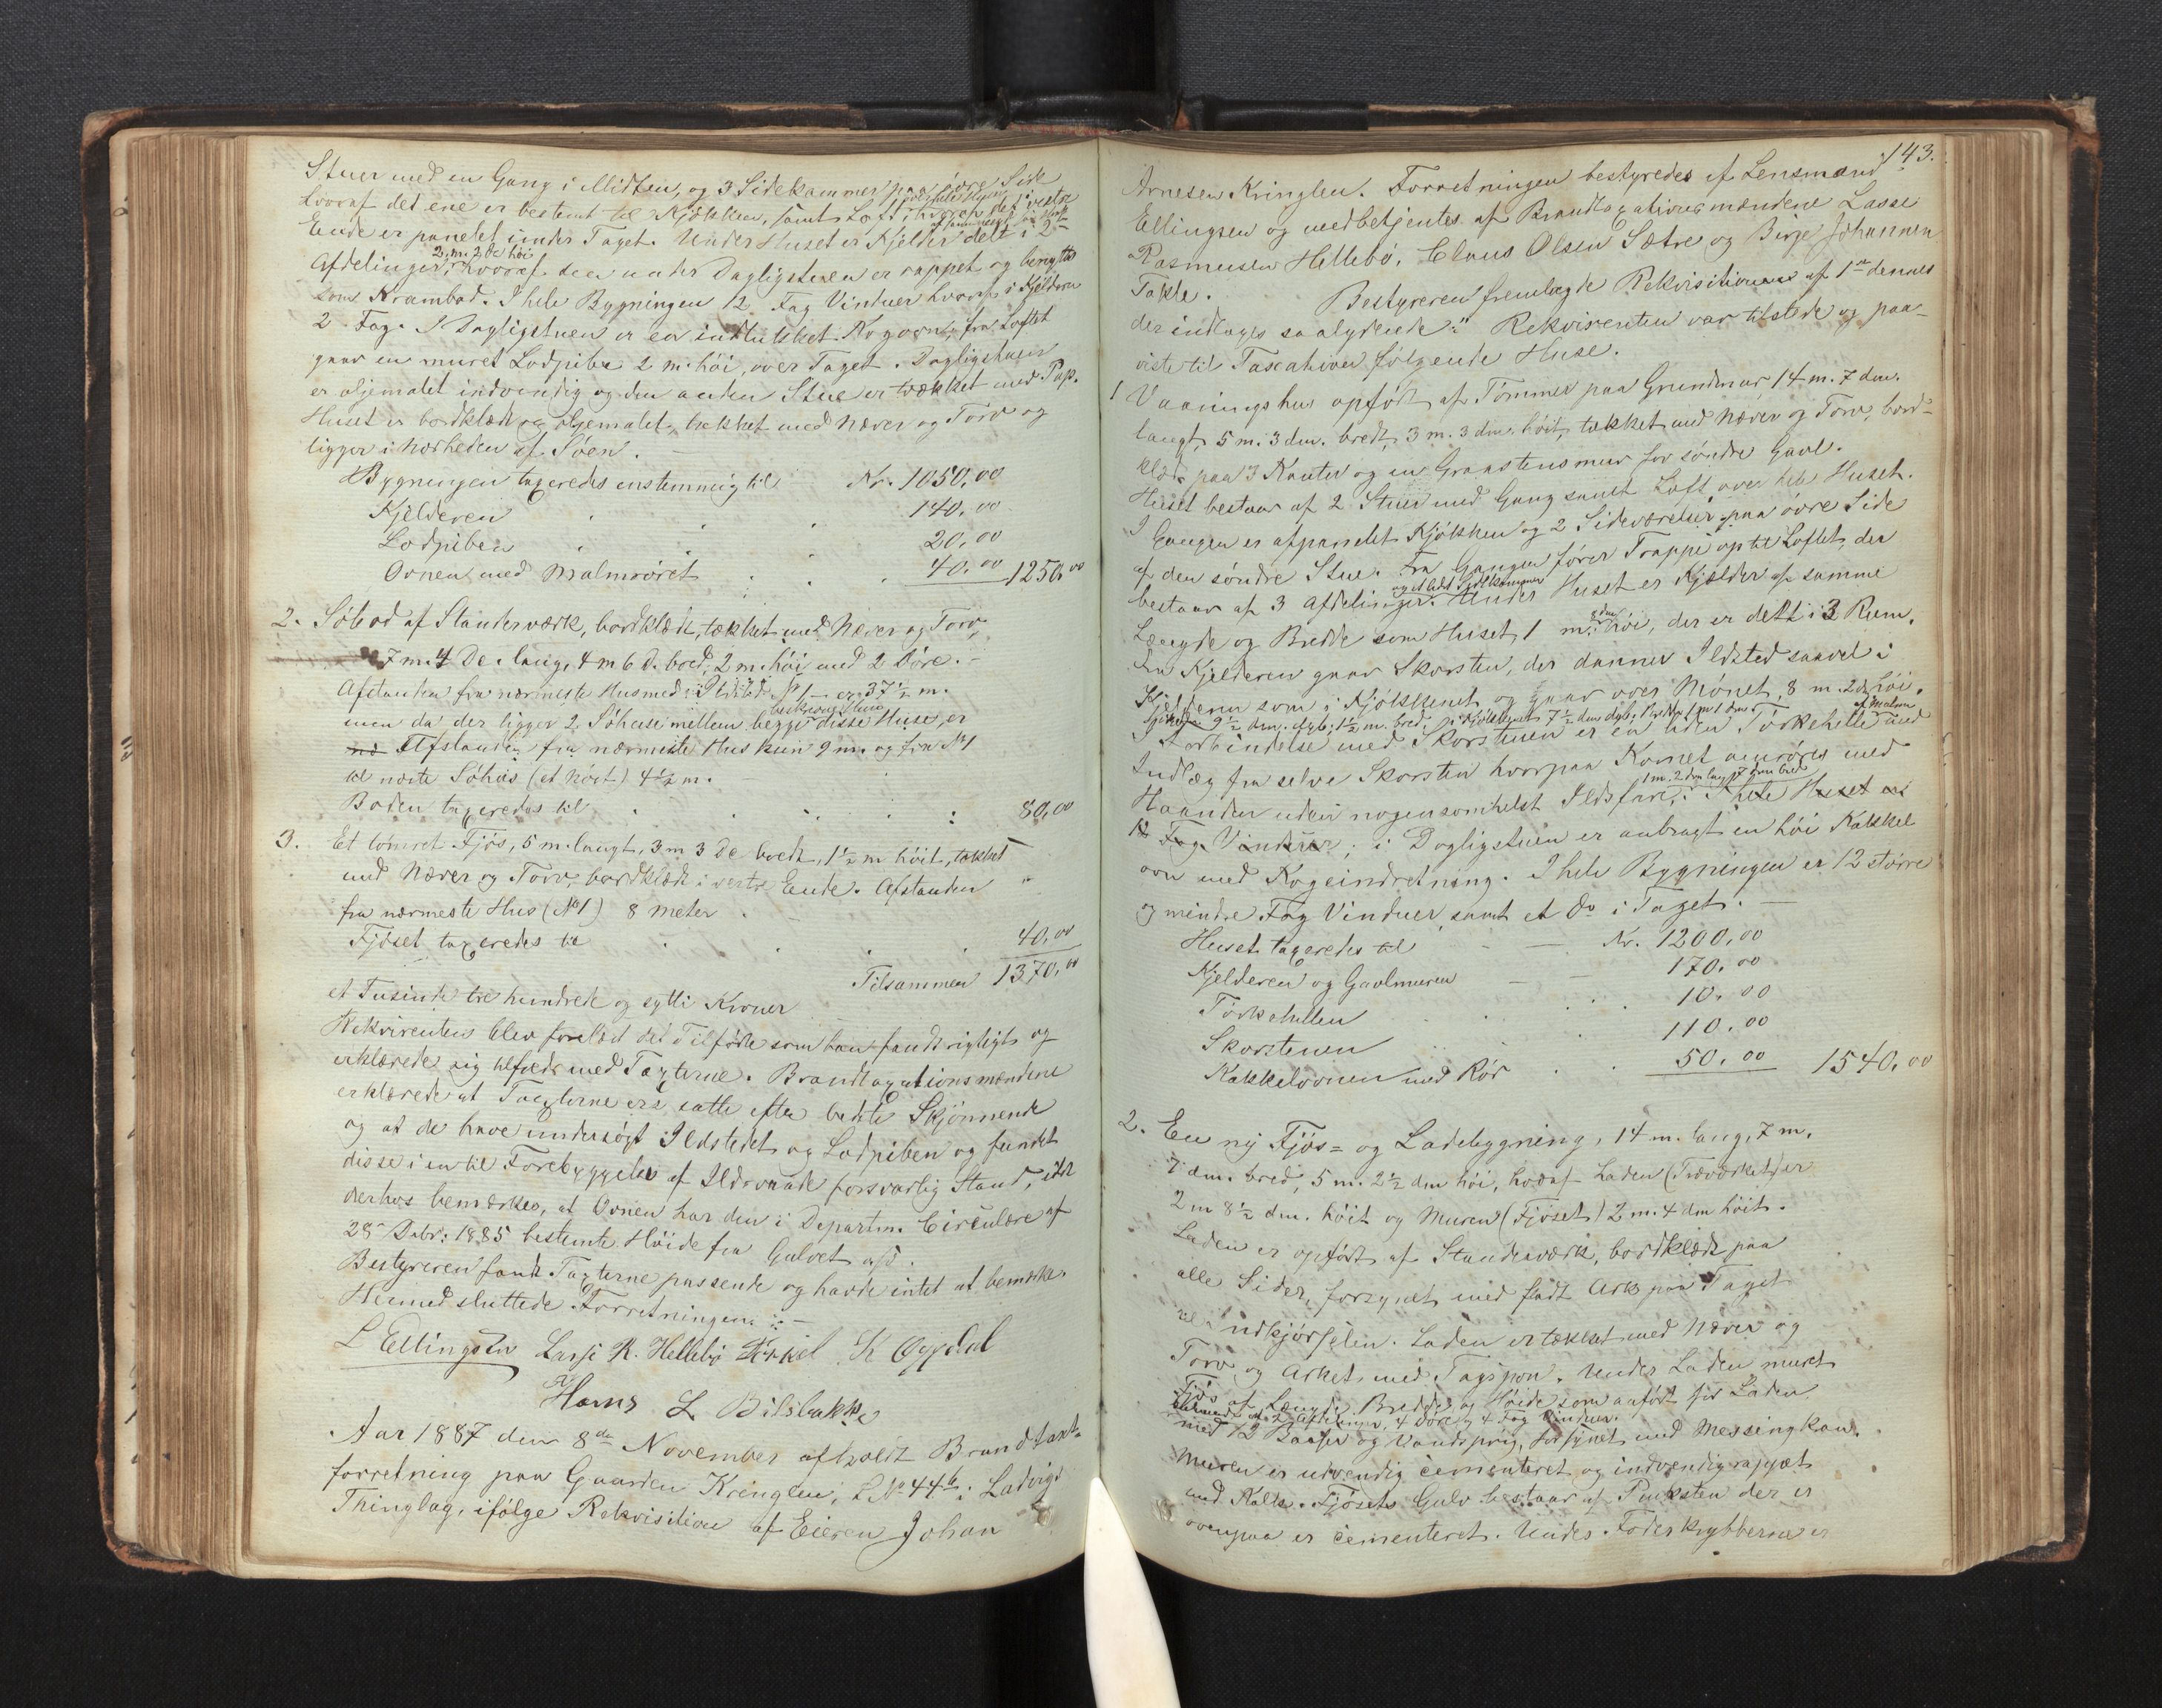 Stuer med en Gang i Midten, og 3 Sidekammer paa øvre Side
hvoraf det ene er bestemt til Kjøkken, samt Loft i hvoraf det vestre
Ende er panelet under Taget. Under Huset er Kjelder delt i 2de
Afdelinger, 2 m. 2 De høi hvoraf den under Dagligstuen er rappet og benyttes
som Krambod. I hele Bygningen 12 Fag Vinduer hvoraf i Kjelderen
2 Fag. I Dagligstuen er en indmuret Kogeovn, fra Loftet
gaar en muret Lodpibe 2 m. høi, over Taget. Dagligstuen
er oljemalet indvendig og den anden Stue er trækket med Pap.
Huset er bordklædt og oljemalet, tækket med Næver og Torv og
ligger i nærheden af Søen.
Bygningen taxeredes enstemmig til Kr. 1050,00
Kjelderen 140,00
Lodpiben 20,00
Ovnen med Malmrøret 40,00 1250,00
2. Søbod af Standerværk, bordklædt, tækket med Næver og Torv,
7 m. 4 De. lang, 4 m 6 D. bred, 2 m. høi med 2 Døre.
Afstanden fra nærmeste Hus med Ildsted No 1 er 37 1/2 m.
men da der ligger 2 Søhuse mellem begge disse Huse, er
Afstanden fra nærmeste Hus kun 9 m. og fra No 1
til næste Søhus (et Nøst) 4 1/2 m.
Boden taxeredes til 80,00
3. Et tømret Fjøs, 5 m. langt, 3 m 3 De bredt, 1 1/2 m høit, tækket
med Næver og Torv, bordklædt i vestre Ende. Afstanden
fra nærmeste Hus (No 1) 8 Meter.
Fjøset taxeredes til 40,00
Tilsammen 1370,00
et Tusinde tre hundrede og sytti Kroner
Rekvirenten blev forelæst det Tilførte som han fandt rigtigt og
erklærede sig tilfreds med Taxterne. Brandtaxationsmændene
erklærede at Taxterne ere satte efter bedste Skjønnende
og at de have undersøgt Ildstedet og Lodpiben og fundet
disse i en til Forebyggelse af Ildsvaade forsvarlig Stand, idet
derhos bemærkes, at Ovnen har den i Departm. Circulære af
28 Dcbr: 1885 bestemte Høide fra Gulvet af.
Bestyreren fandt Taxterne passende og havde intet at bemærke.
Hermed sluttede Forretningen.
L Ellingsen Lasse R. Hellebø K Oppdal
Hans L Bilsbakke
Aar 1887 den 8de November afholdt Brandtaxt-
forretning paa Gaarden Kringlen, L No 44b i Ladvigs
Thinglag, ifølge Rekvisition af Eieren Johan
143.
Arnesen Kringlen. Forretningen bestyredes af Lensmand
Ellingsen og medbetjentes af Brandtaxationsmændene Lasse
Rasmusen Hellebø, Claus Olsen Sætre og Birje Johannesen
Takle. Bestyreren fremlagde Rekvisitionen af 1ste dennes
der indtages saalydende: " Rekvirenten var tilstede og paa-
viste til Taxation følgende Huse.
1 Vaaningshus opført af Tømmer paa Grundmur 14 m. 7 dm.
langt, 5 m. 3 dm. bredt, 3 m. 3 dm. høit, tækket med Næver og Torv, bord-
klædt paa 3 Kanter og en Graastensmur for søndre Gavl.
Huset bestaar af 2 Stuer med Gang samt Loft over hele Huset.
I Gangen er afpanelet Kjøkken og 2 Sideværelser paa øvre Side
af den søndre Stue. Fra Gangen fører Trappe op til Loftet, der
bestaar af 3 Afdelinger. Under Huset er Kjælder af samme
Længde og Bredde som Huset, 1 m. høi, der er delt i 3 Rum.
Fra Kjelderen gaar Skorsten, der danner Ildsted saavel i
Kjelderen som i Kjøkkenet og gaar over Mønet, 8 m. 2 dm høi,
9 1/2 dm. dyb, 1 1/2 m. bred, i Kjøkkenet 7 1/2 dm dyb, 1 m 1 dm
I Forbindelse med Skorstenen er en liden Tørkehelle af Malm med
Indlæg fra selve Skorsten hvorpaa Kornet omrøres med
Haanden uden nogensomhelst Ildsfare, 1 m. 2 dm lang 7 dm bred. I hele Huset er
12 Fag Vinduer; i Dagligstuen er anbragt en høi Kakkel
ovn med Kogeindretning. I hele Bygningen er 12 større
og mindre Fag Vinduer samt et do i Taget.
Huset taxeredes til Kr. 1200,00
Kjelderen og Gavlmuren 170,00
Tørkehellen 10,00
Skorstenen 110,00
Kakkelovnen med Rør 50,00 1540,00
2. En ny Fjøs- og Ladebygning, 14 m. lang, 7 m.
7 dm. bred, 5 m. 2 1/2 dm høi, hvoraf Laden (Træværket) er
2 m 8 1/2 dm. høit og Muren (Fjøset) 2 m. 4 dm høit.
Laden er opført af Standerværk, bordklædt paa
alle Sider, forsynet med fladt Ark paa Taget
til Indkjørselen. Laden er tækket med Næver og
Torv og Arket med Tagspon. Under Laden muret
Fjøs af Længde, Bredde og Høide som anført for Laden
2 Afdelinger, 4 Døre og 4 Fag Vinduer.
med 12 Baase og Vandspring, forsynet med Messingkran.
Muren er udvendig cementeret og indvendig rappet
med Kalk. Fjøsets Gulv bestaar af Puksten der er
ovenpaa er cementeret. Under Foderkrybberne er